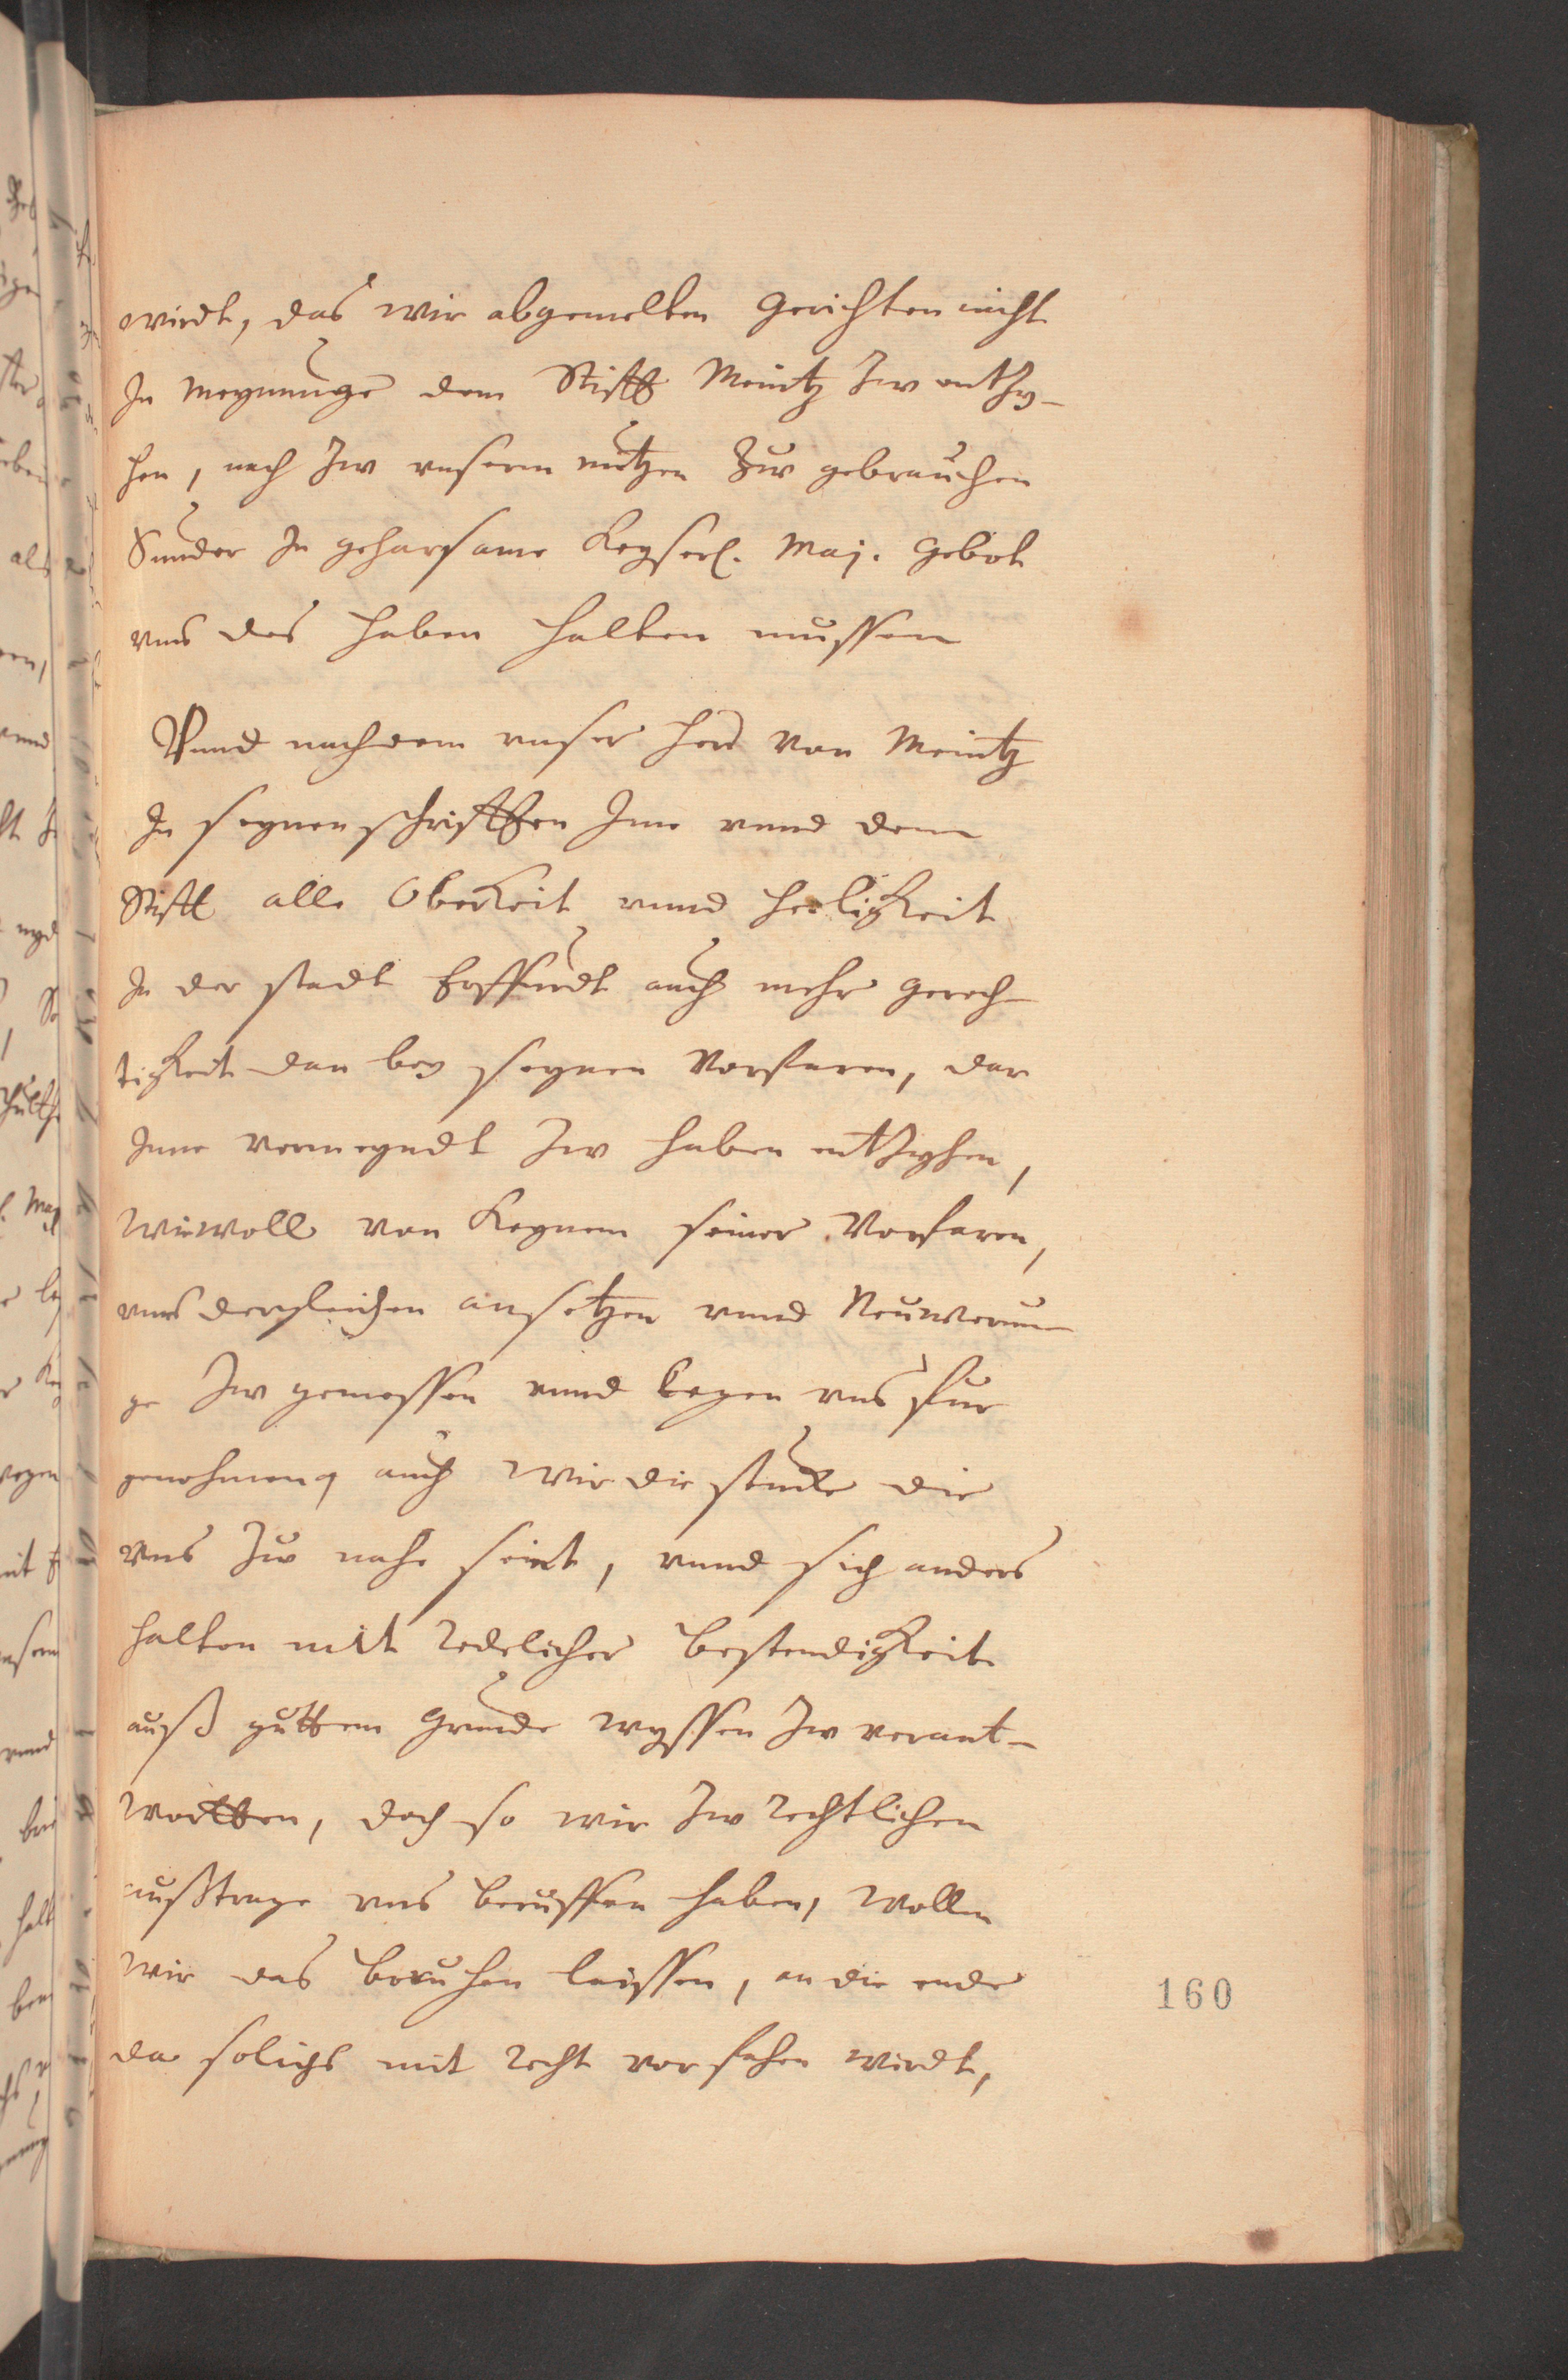 wirdt, das wir abgemelten Gerichten nicht
In meynunge dem Stifft Meintz Zw entzy-
hen, nach Zw unserm nutzen Zuw gebrauchen
Sunder In gehorsame Keyserl. Maj. Gebot
vns des haben halten mussen
Vnnd nachdem vnser Herr von Meintz
In seynen schrifften Ime vnnd dem
Stifft alle Oberkeit vnnd herligkeit
In der stadt Erffurdt auch mehr gerech-
tigkeit dan bey seynen Vorfaren, dar
Inne vermeyndt Zw haben entzyhen,
wiewoll von Keynem seiner Vorfaren,
vns dergleichen ansetzen vnnd Neuwerun
ge Zw gemessen vnnd kegen vns fur
genohmen, auch wir die stucke die
vns Zuw nahe seint, vnnd sich anders
halten mit redelicher bestendigkeit
auß guttem Grunde wyssen Zw verant-
wortten, doch so wir Zw rechtlichen
außtrage vns beruffen haben, wollen
wir das beruhen laissen, an die ende
da solichs mit recht vorfahen wirdt,
160